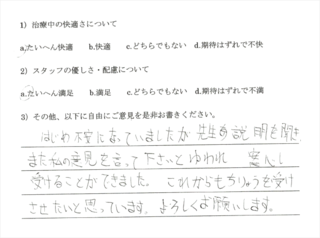 1）治療中の快適さについて
a.たいへん快適 b.快適 c.どちらでもない d.期待はずれで不快
2）スタッフの優しさ・配慮について
a.たいへん満足 b.満足 c.どちらでもない d.期待はずれで不満
3）その他、以下に自由にご意見を是非お書きください。
はじめ不安になっていましたが先生の説明を聞き
また私の意見を言って下さいとゆわれ 安心し
受けることができました。これからもちりょうを受け
させたいと思っています。よろしくお願いします。